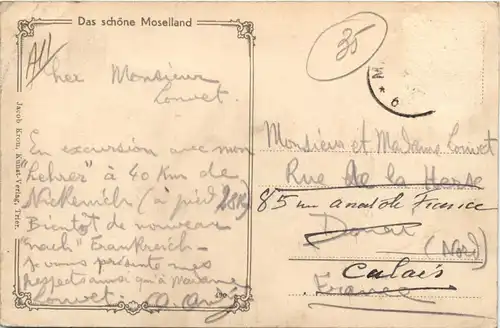 Das schöne Moselland
35
All
Cher Monsieur
Louvet.
En excursion avec mon
"Lehrer" à 40 Km de
Nickenich (à pied
Bientôt de nouveau
"nach" Frankreich
Je vous présente mes
respects ainsi qu'à Madame
Louvet.
Jacob Kron, Kunst-Verlag, Trier.
Monsieur et Madame Louvet
Rue de la Herse
85 rue anatole France
Douai
(Nord)
Calais
France